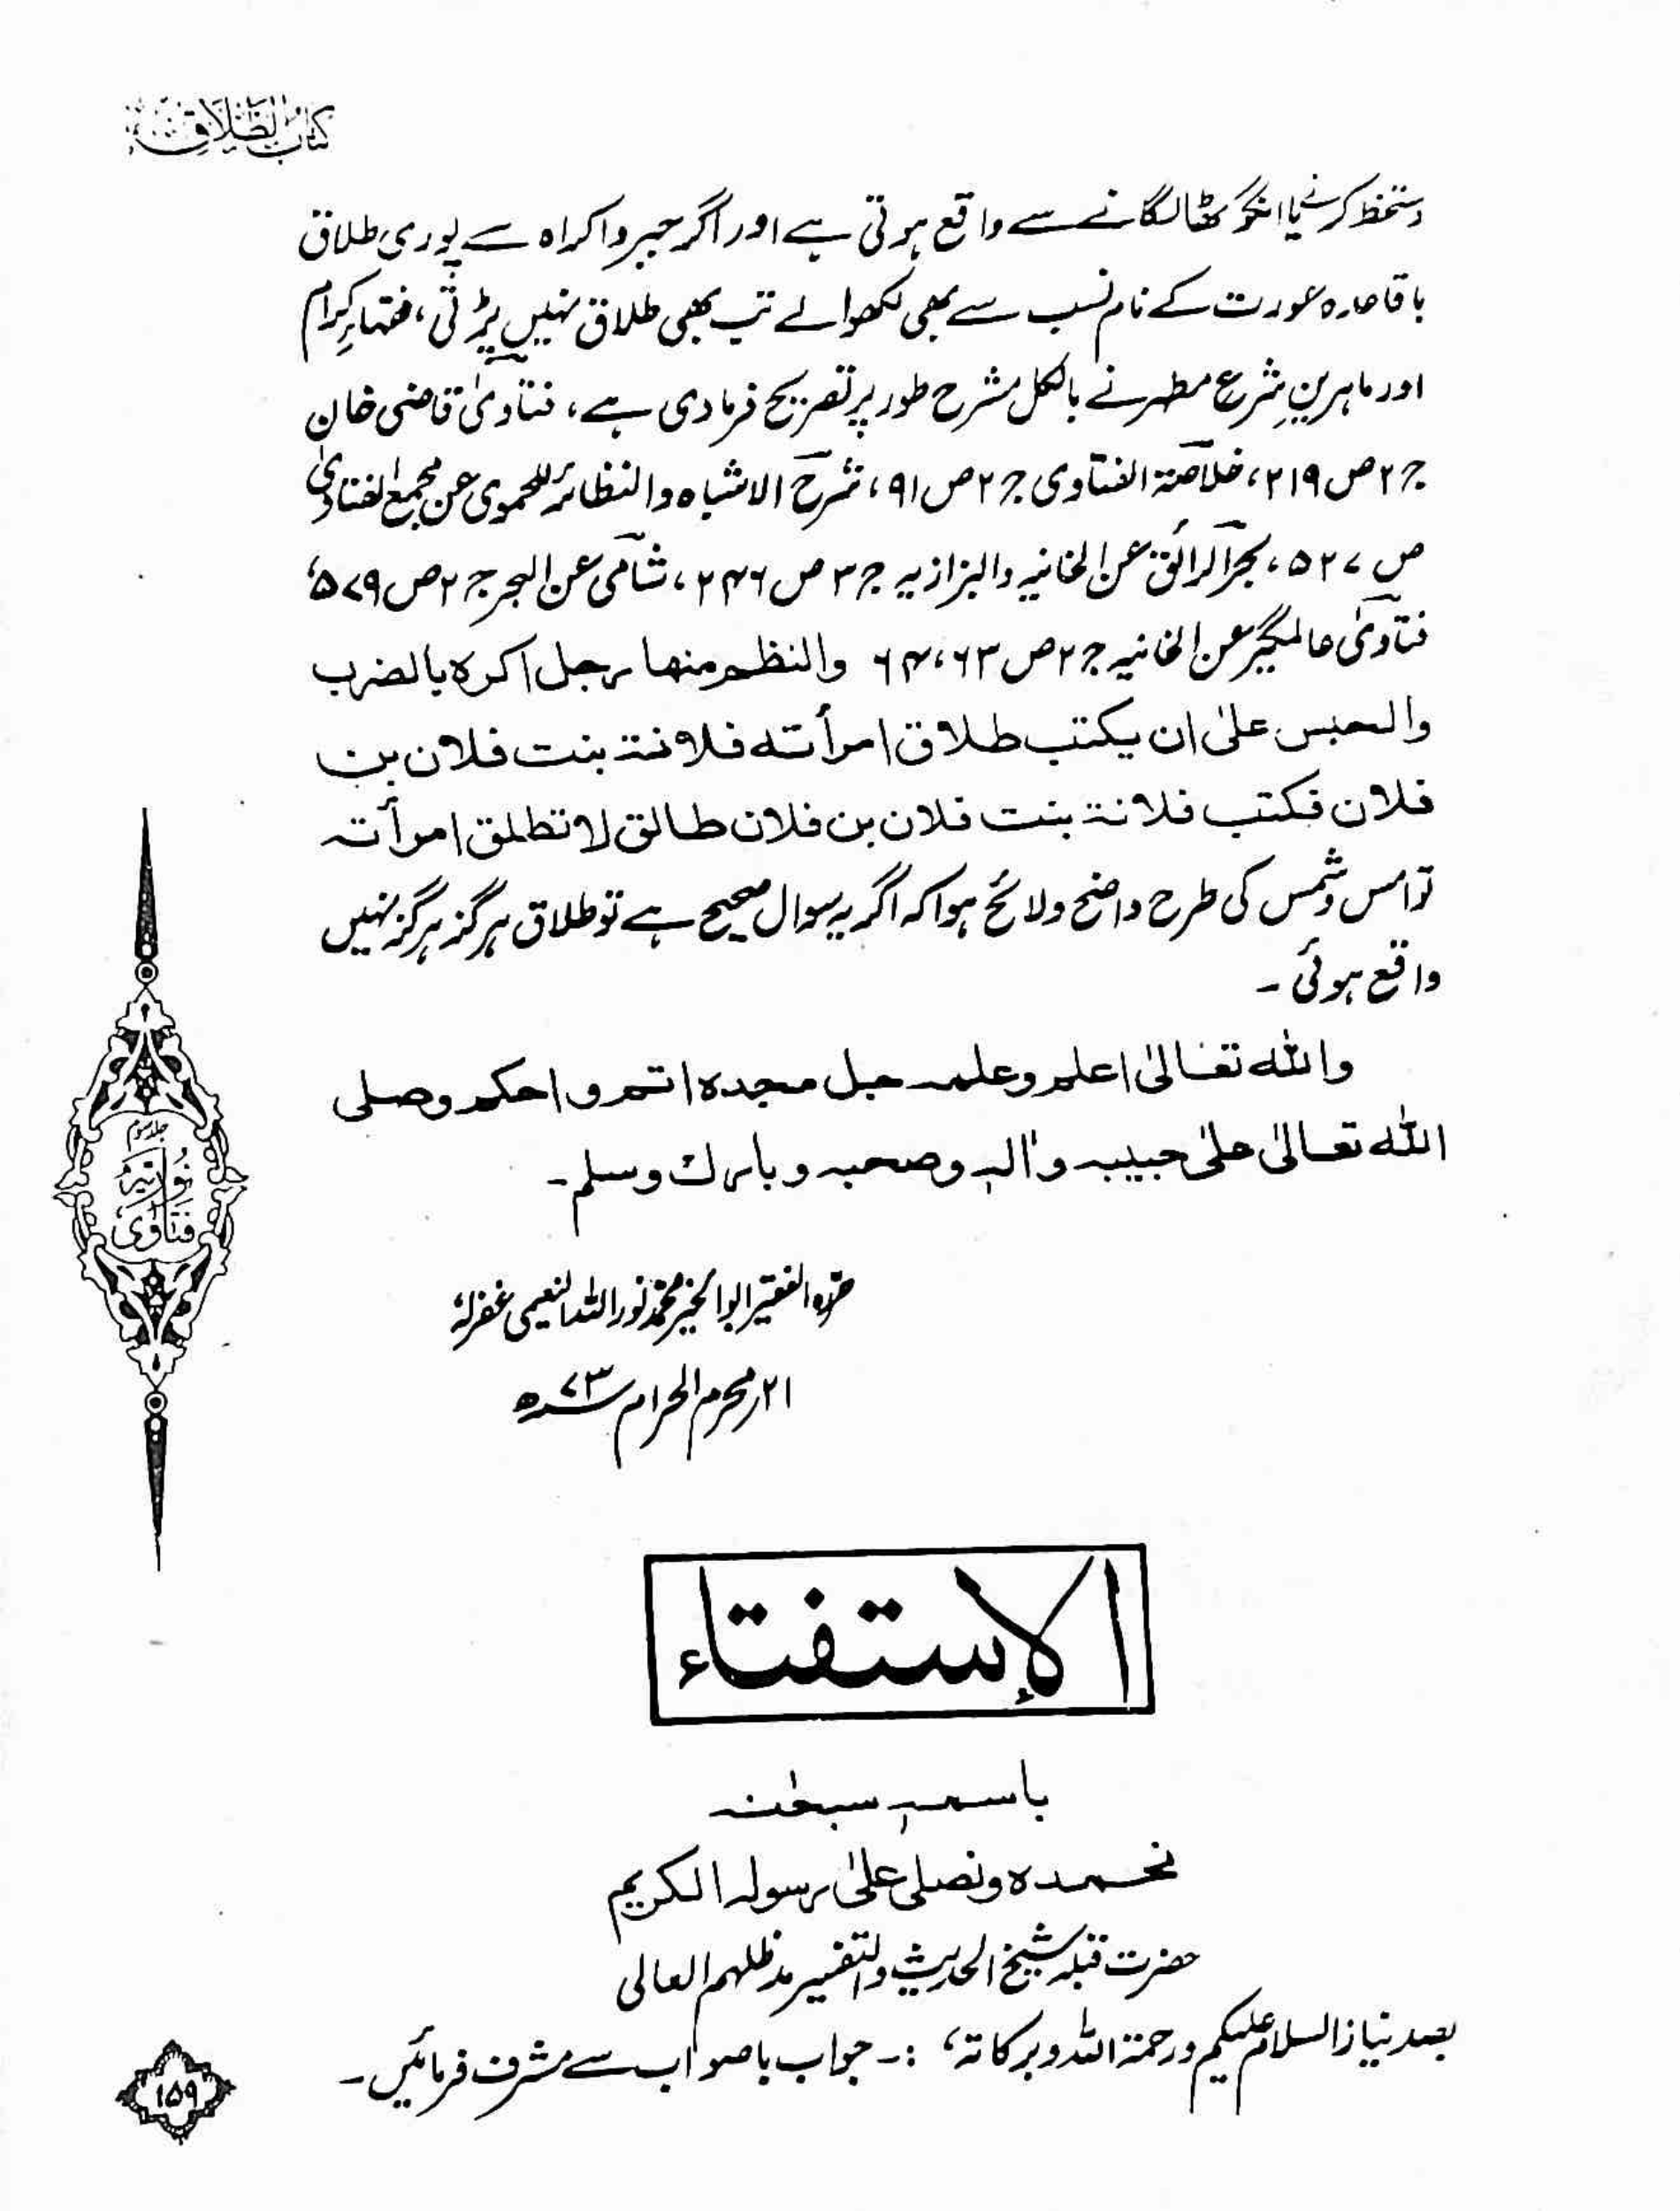 كتاب الطلاق
دستخط کرنے یا انگوٹھا لگانے سے واقع ہوتی ہے اور اگر جبر و اکراہ سے پوری طلاق
باقاعدہ عورت کے نام نسب سے بھی لکھوالے تب بھی طلاق نہیں پڑتی، فقہاءِ کرام
اور ماہرینِ شرع مطہر نے بالکل مشرح طور پر تصریح فرمادی ہے، فتاویٰ قاضی خان
ج ۲ ص ۲۱۹، خلاصۃ الفتاوی ج ۲ ص ۹۱، شرح الاشباہ والنظائر للحموی عن مجمع الفتاویٰ
ص ۵۲۷، بحر الرائق عن الخانیہ والبزازیہ ج ۳ ص ۲۴۶، شامی عن البحر ج ۲ ص ۵۷۹،
فتاویٰ عالمگیر عن الخانیہ ج ۲ ص ۶۳، ۶۴ والنظم منها رجل اكره بالضرب
والحبس علىٰ ان يكتب طلاق امرأته فلانة بنت فلان بن
فلان فكتب فلانة بنت فلان بن فلان طالق لا تطلق امرأته
تو امس و شمس کی طرح واضح و لائح ہوا کہ اگر یہ سوال صحیح ہے تو طلاق ہرگز ہرگز نہیں
واقع ہوئی ۔
والله تعالىٰ اعلم وعلمه جل مجده اتم واحكم وصلى
الله تعالىٰ علىٰ حبيبه واٰله وصحبه وبارك وسلم ۔
حرّہ الفقیر ابوالخیر محمد نور اللہ النعیمی غفرلہٗ
۲۱ر محرم الحرام ۷۳ھ
جلد سوم
فتاویٰ نوریہ
الإستفتاء
باسمه سبحٰنه
نحمده ونصلى علىٰ رسوله الكريم
حضرت قبلہ شیخ الحدیث والتفسیر مدظلہم العالی
بصد نیاز السلام علیکم ورحمۃ اللہ وبرکاتہٗ، :۔ جواب باصواب سے مشرف فرمائیں۔
۱۵۹